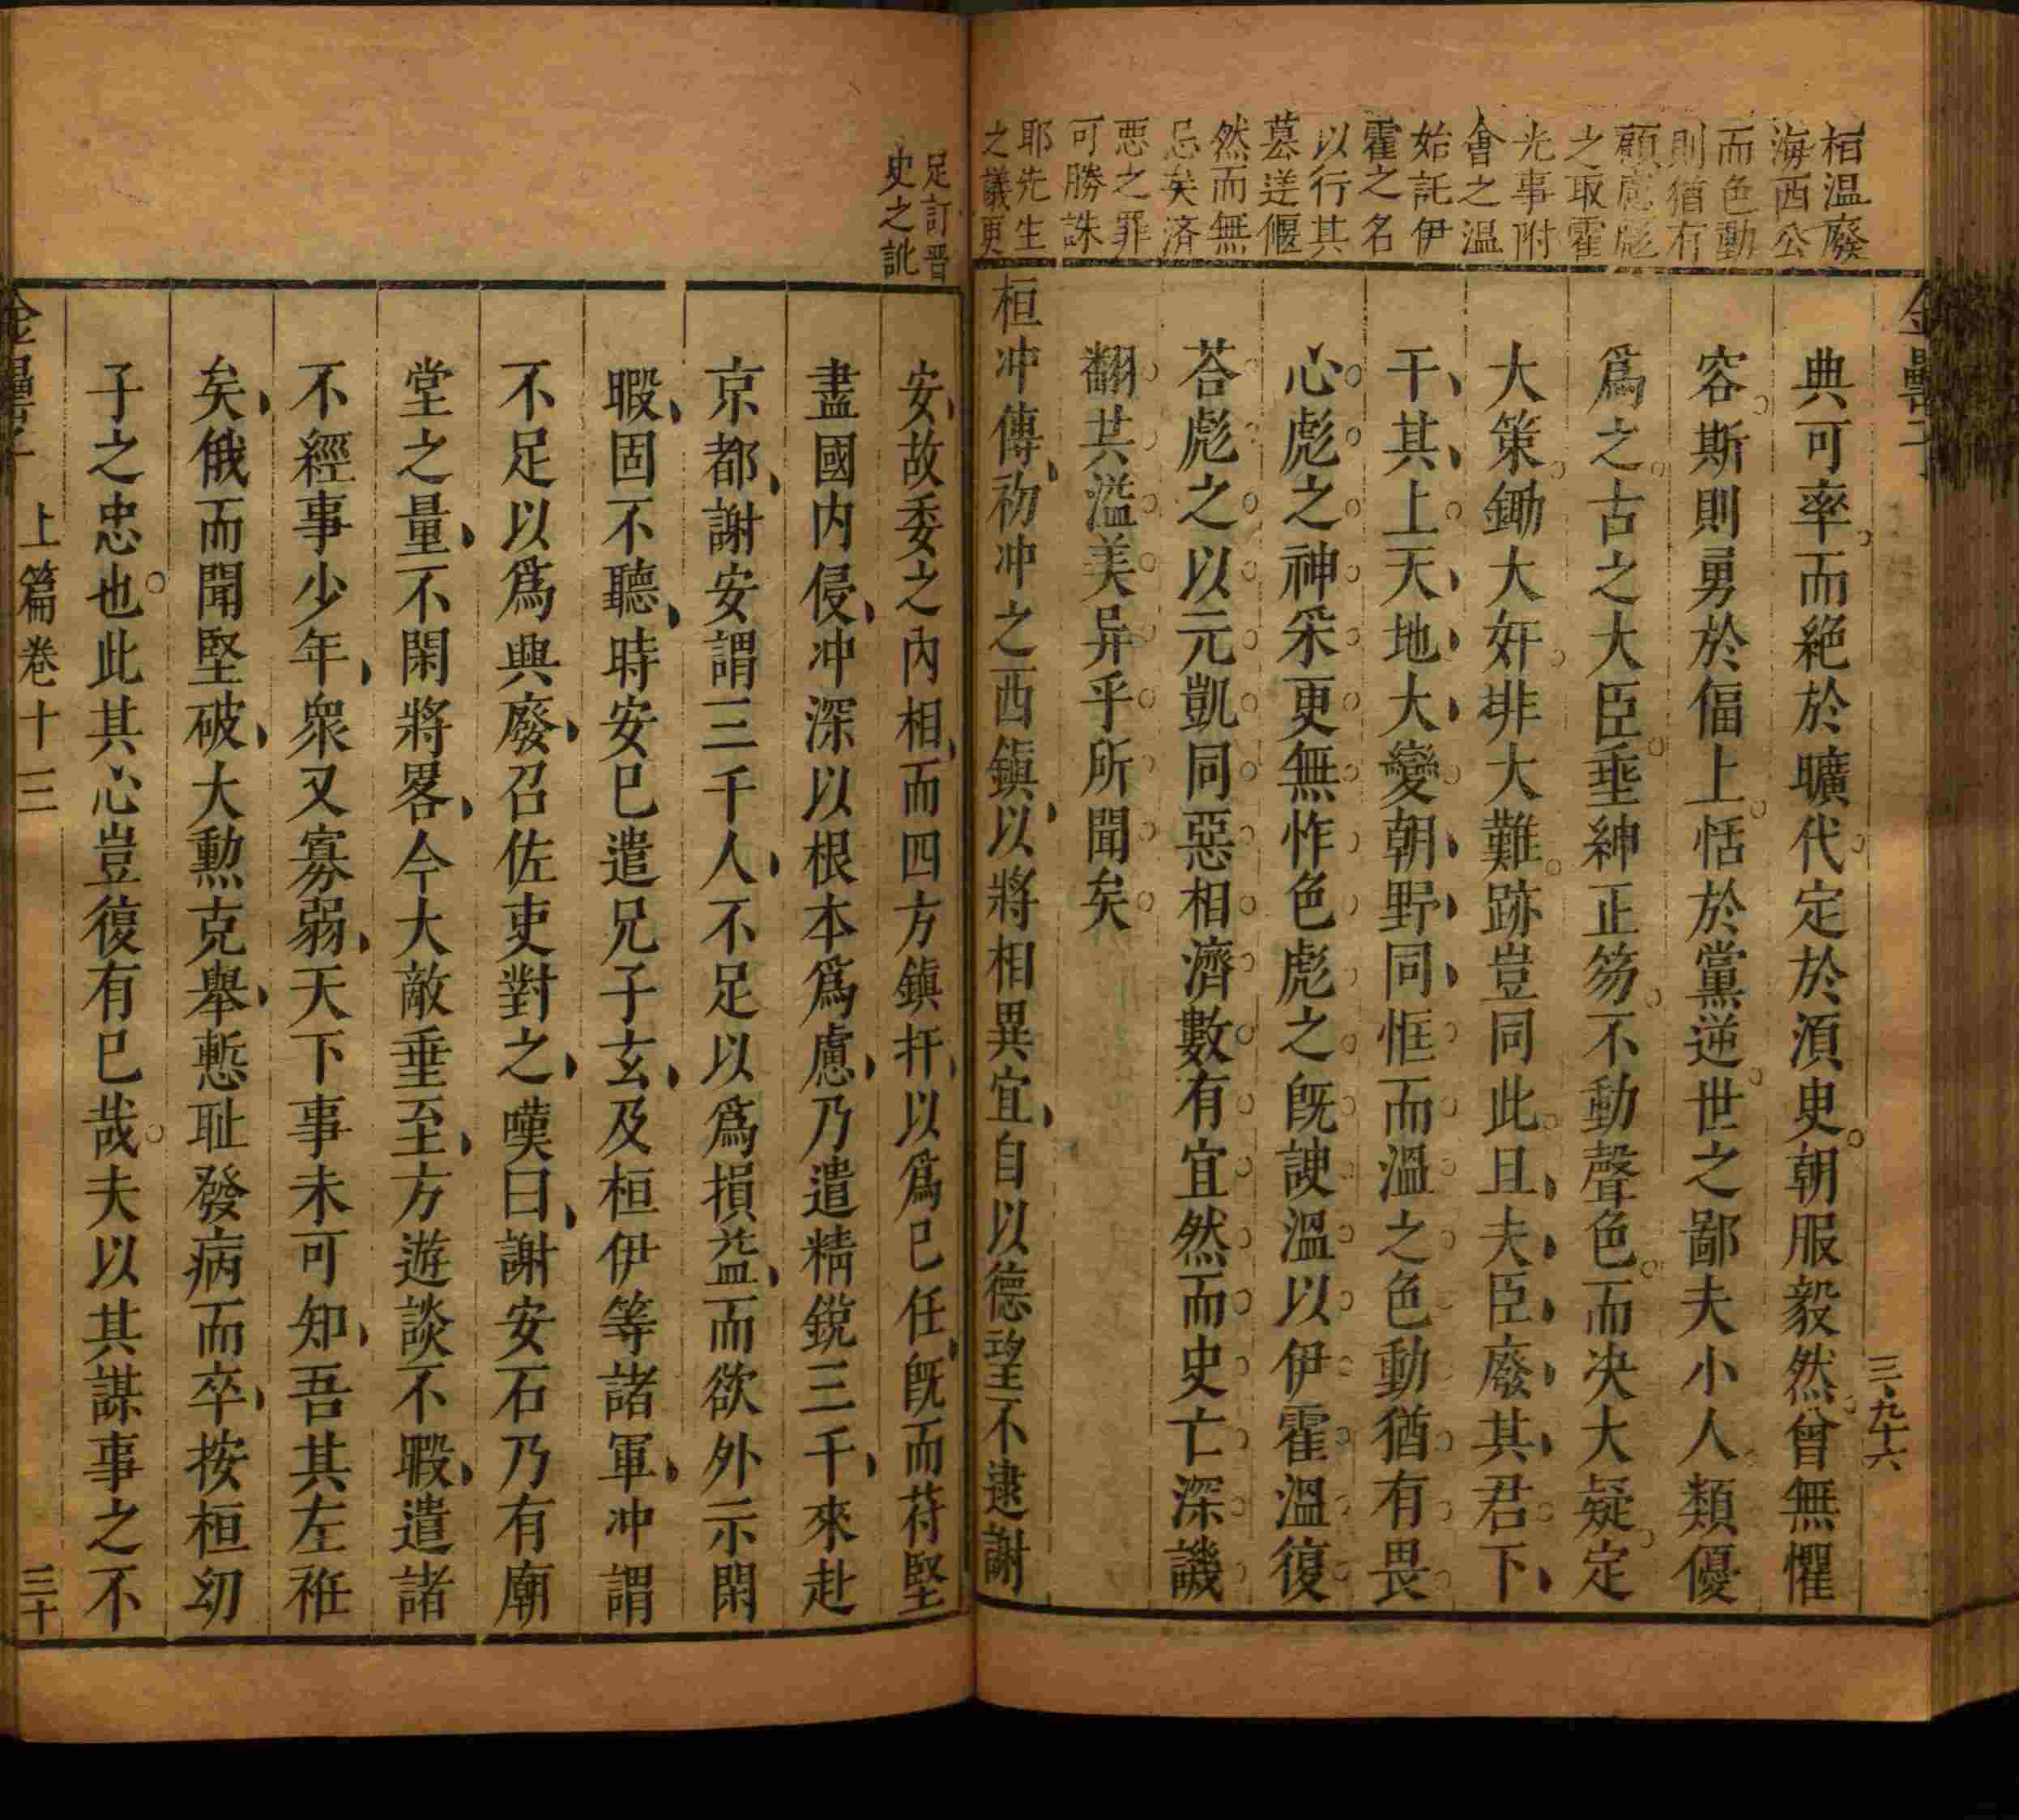 桓温廢
海西公
而色動
則猶有
顧慮彪
之取霍
光事附
會之温
始託伊
霍之名
以行其
慕逆偃
然而無
忌矣済
惡之罪
可勝誅
耶先生
之議更
金罍子
三九十六
典可率而絕於曠代定於湏㬰朝服毅然曾無懼
容斯則勇於偪上恬於黨逆世之鄙夫小人類優
爲之古之大臣垂紳正笏不動聲色而决大疑定
大策鋤大奸排大難跡豈同此且夫臣廢其君下
干其上天地大變朝野同恇而溫之色動猶有畏
心彪之神采更無怍色彪之旣諛溫以伊霍溫復
荅彪之以元凱同惡相濟數有宜然而史亡深譏
翻其溢美异乎所聞矣
桓冲傳初冲之西鎮以將相異宜自以德望不逮謝
足訂晋
史之訛
安故委之內相而四方鎮扞以爲己任旣而苻堅
盡國内侵冲深以根本爲慮乃遣精銳三千來赴
京都謝安謂三千人不足以爲損益而欲外示閑
暇固不聽時安已遣兄子玄及桓伊等諸軍冲謂
不足以爲興廢召佐吏對之嘆曰謝安石乃有廟
堂之量不閑將畧今大敵垂至方遊談不暇遣諸
不經事少年衆又寡弱天下事未可知吾其左袵
矣俄而聞堅破大勲克舉慙耻發病而卒按桓㓜
子之忠也此其心豈復有已哉夫以其謀事之不
金罍子
上篇卷十三
三十